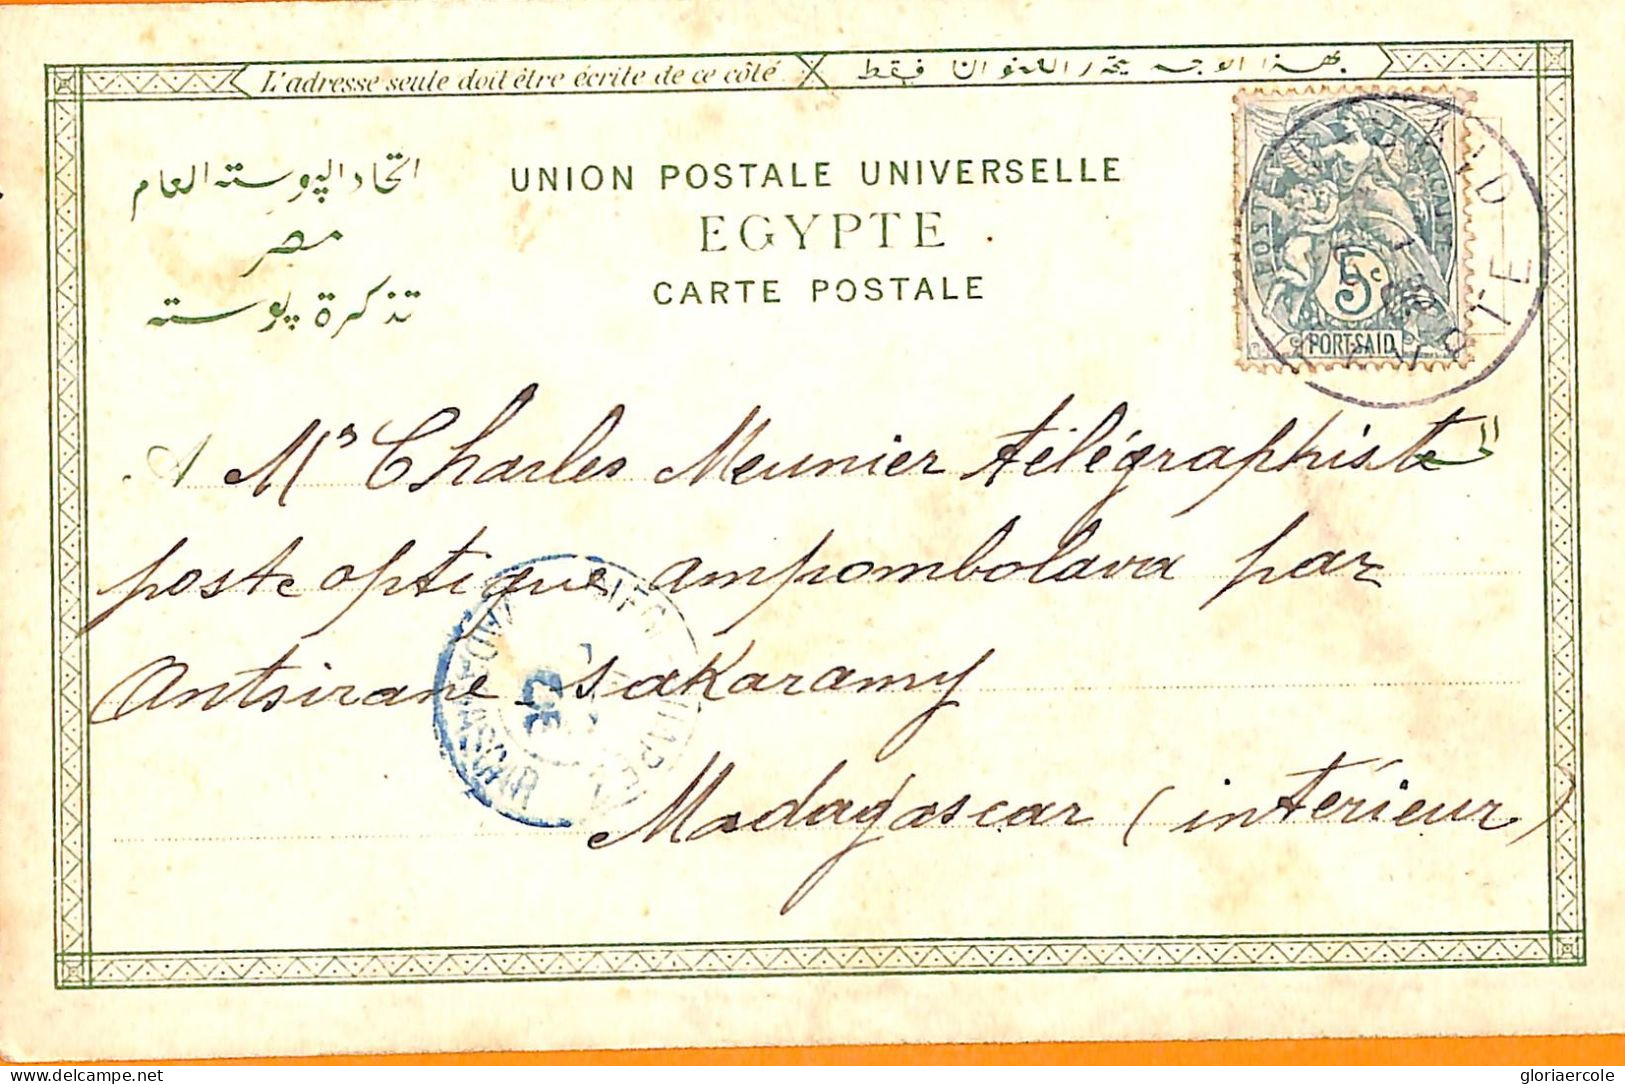 L'adresse seule doit être écrite de ce côté. بهذا الوجه يحرر العنوان فقط
اتحاد البوسته العام
مصر
تذكرة بوسته
UNION POSTALE UNIVERSELLE
EGYPTE
CARTE POSTALE
POSTES FRANÇAISE
5c
PORT-SAID
SAID
A Mr Charles Meunier télégraphiste
poste optique ampombolava par
Antsirane sakaramy
Madagascar (intérieur)
MADAGASCAR
delcampe.net
gloriaercole